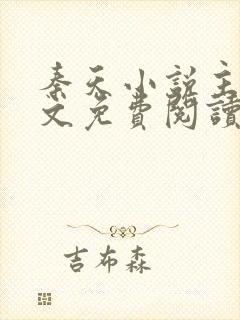 秦天小說主
文免費閱讀
吉布森